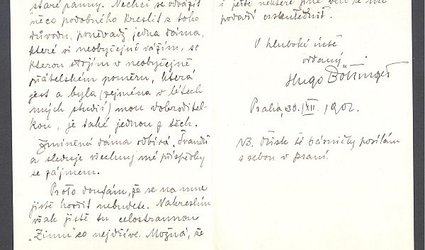 staré panny. Nechci se odvážit
něco podobného kreslit z toho
důvodu, poněvadž jedna dáma,
které si neobyčejně vážím, se
kterou stojím v neobyčejně
přátelském poměru, která
jest a byla (zejména v letech
mých studií) mou dobroditel-
kou, je také jednou z těch.
Zmíněná dáma odbírá
a sleduje všechny mé příspěvky
se zájmem.
Proto doufám, že se na mne
jistě horšit nebudete. Nakreslím
však jistě tu celostrannou
„Zimu“ co nejdříve. Možná, že
i ještě některé jiné věci se mi
podaří uskutečnit.
V hluboké úctě
oddaný
Hugo Böttinger
Praha, 30. XII. 1902.
NB. básničky posílám
s sebou v psaní.